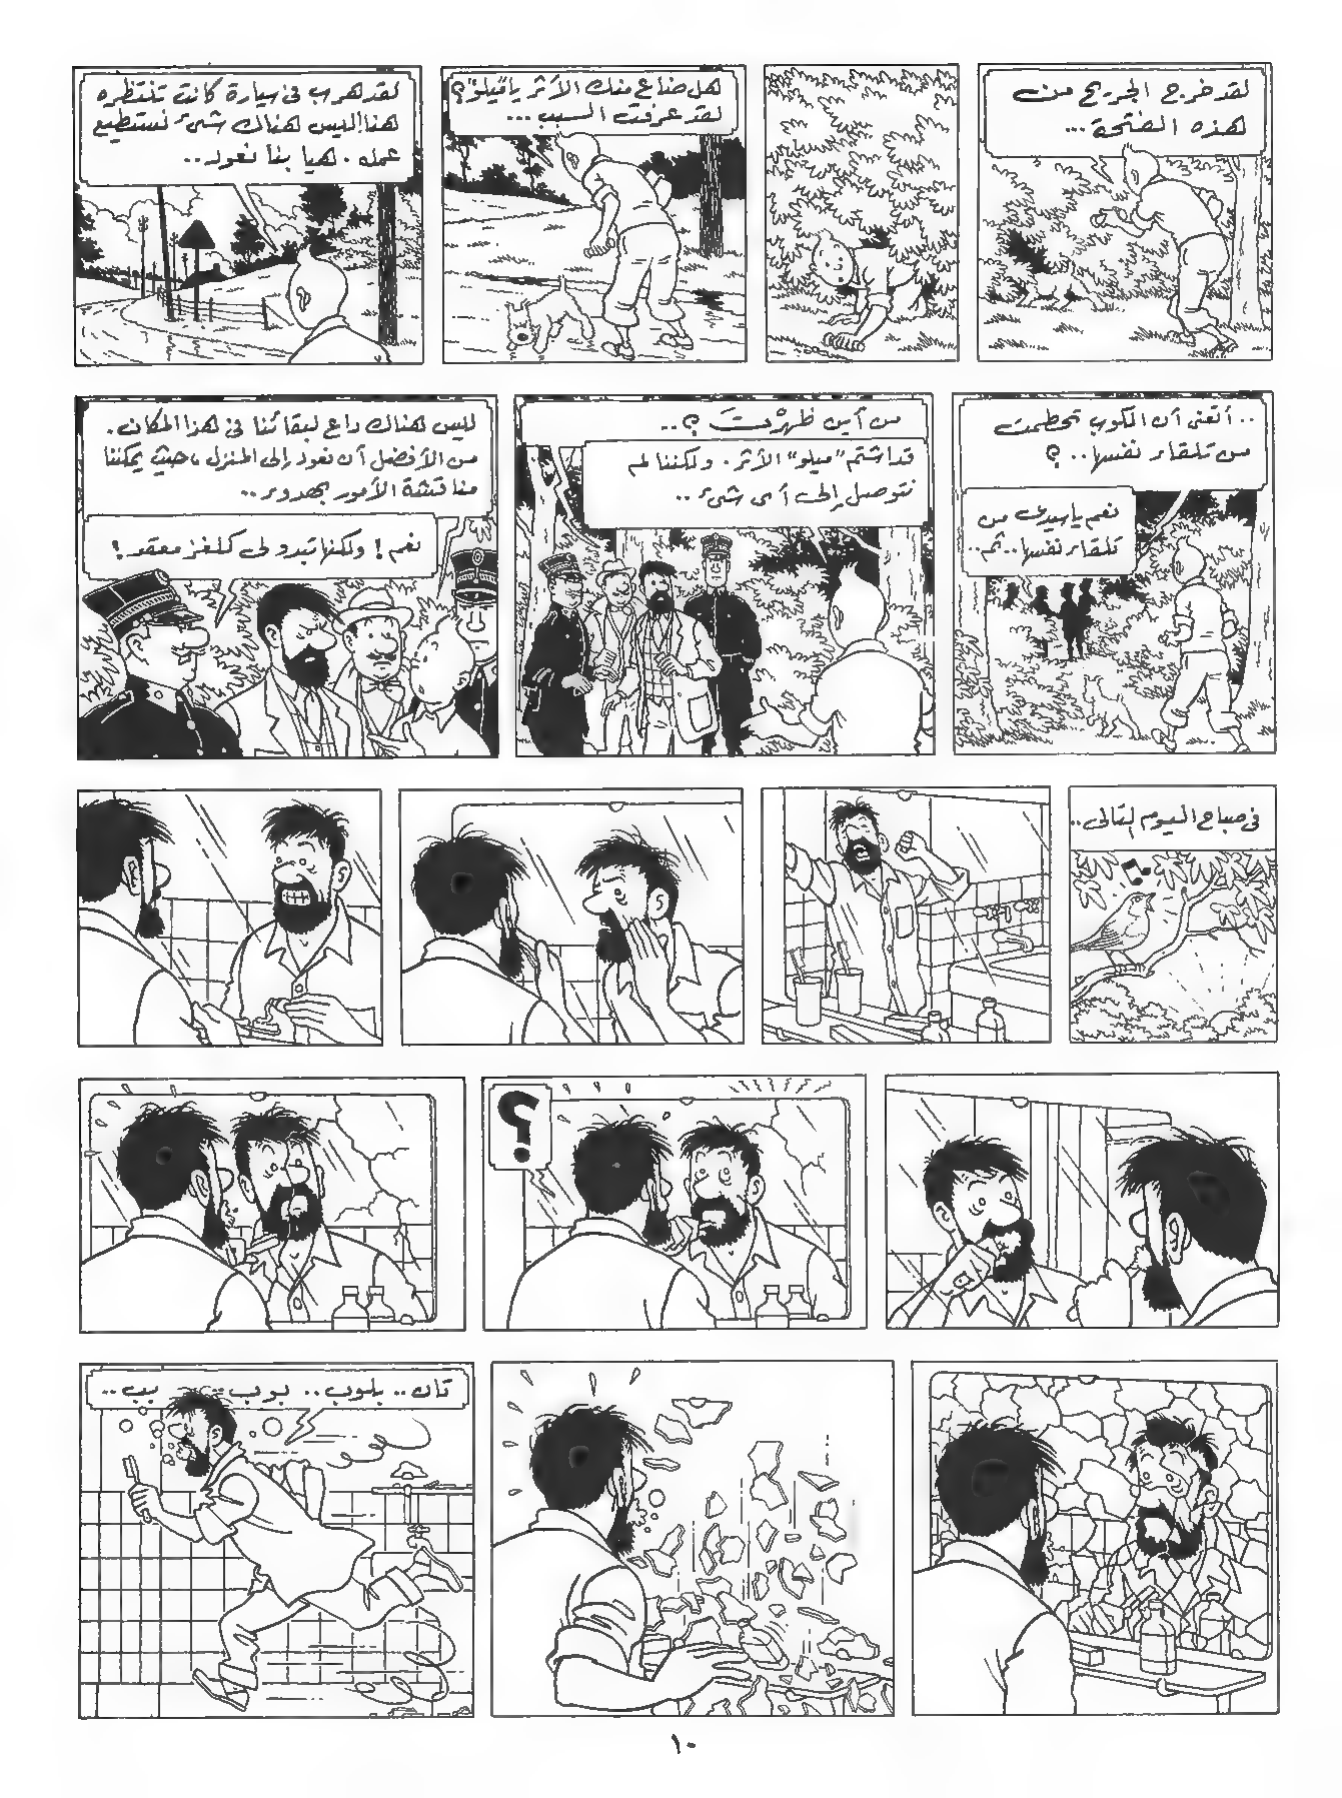 لقد خرج الجريح من
هذه الفتحة...
هل ضاع منك الأثر يا "ميلو"؟
لقد عرفت السبب...
لقد هرب فى سيارة كانت تنتظره
هنا! ليس هناك شىء نستطيع
عمله. هيا بنا نعود..
.. أتعنى أن الكوب تحطمت
من تلقاء نفسها..؟
نعم يا سيدى من
تلقاء نفسها.. ثم..
من أين ظهرْتَ ؟..
قد اشتم "ميلو" الأثر. ولكننا لم
نتوصل إلى أى شىء..
ليس هناك داع لبقائنا فى هذا المكان.
من الأفضل أن نعود إلى المنزل، حيث يمكننا
مناقشة الأمور بهدوء..
نعم! ولكنها تبدو لى كلغز معقد!
فى صباح اليوم التالى..
؟
تان.. بلوب.. بوب.. بب..
١٠